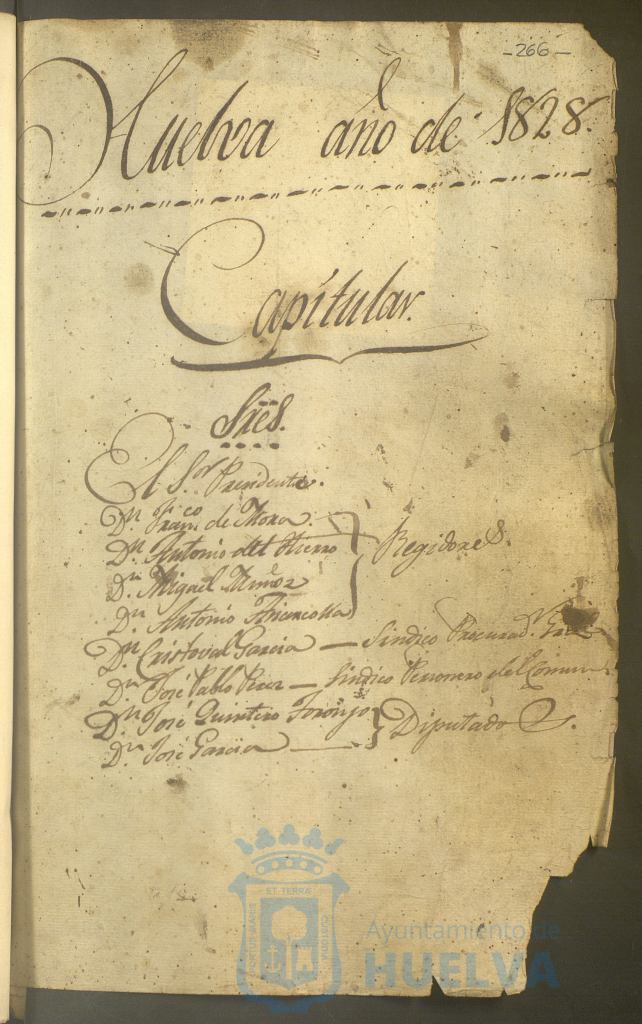 -266-
Huelva año de 1828.
Capitular.
Sres.
El Sor Presidente.
Dn. Franco de Mora.
Dn Antonio del Hierro
Dn. Miguel Muñoz
Dn. Antonio
Regidores.
Dn. Cristoval Garcia — Sindico Procurador
Dn. José Pablo Perez — Sindico Personero del Comun
Dn. José Quintero Toronjo
Dn. José Garcia —
Diputados.
ET TERRÆ
PORTUS MARIS
CUSTODIA
Ayuntamiento de
HUELVA